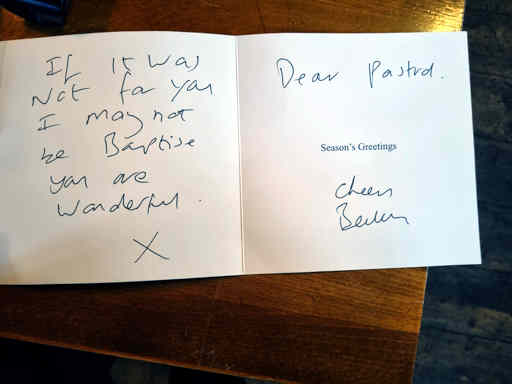 If it was
Not for you
I may not
be Baptise
you are
wonderful.
X
Dear Pastrd.
Season's Greetings
cheers